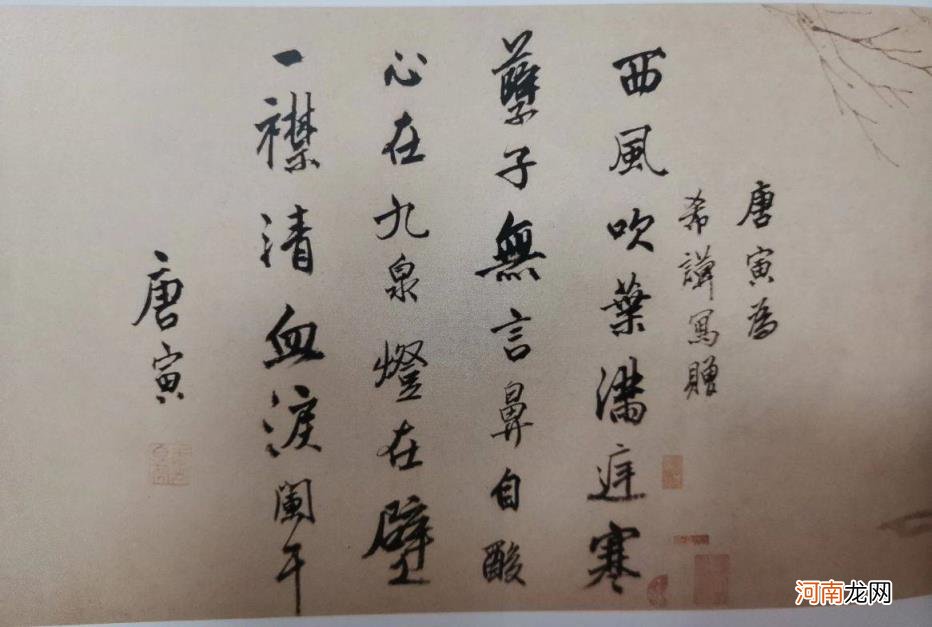 唐寅為
希謨寫贈
西風吹葉滿庭寒
孽子無言鼻自酸
心在九泉燈在壁
一襟清血淚闌干
唐寅
河南龙网